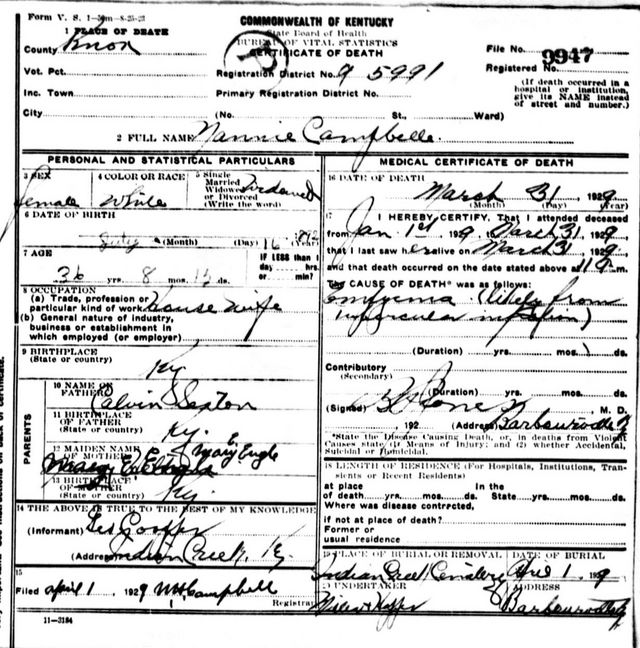 Form V. S. 1—50m—8-25-23
COMMONWEALTH OF KENTUCKY
State Board of Health
BUREAU OF VITAL STATISTICS
CERTIFICATE OF DEATH
1 PLACE OF DEATH
County Knox
Vot. Pct.
Inc. Town
City
Registration District No. 95991
Primary Registration District No.
(No. St., Ward)
File No. 9947
Registered No.
(If death occurred in a
hospital or institution,
give its NAME instead
of street and number.)
2 FULL NAME Nannie Campbelle.
PERSONAL AND STATISTICAL PARTICULARS
3 SEX
female
4 COLOR OR RACE
White
5 Single
Married
Widowed
or Divorced
(Write the word)
Widowed
6 DATE OF BIRTH
July (Month) (Day) 16
7 AGE
36 yrs. 8 mos. 15 ds.
IF LESS than 1
day hrs.
or min?
8 OCCUPATION
(a) Trade, profession or
particular kind of work House wife
(b) General nature of industry,
business or establishment in
which employed (or employer)
9 BIRTHPLACE
(State or country)
Ky
PARENTS
10 NAME OF
FATHER
Calvin Sexton
11 BIRTHPLACE
OF FATHER
(State or country)
Ky.
12 MAIDEN NAME
OF MOTHER
Mary E. Engle
13 BIRTHPLACE
OF MOTHER
(State or country)
Ky.
14 THE ABOVE IS TRUE TO THE BEST OF MY KNOWLEDGE
(Informant)
(Address) Indian Creek, Ky.
15
Filed april 1 1929 WH Campbell
Registrar
11—3184
MEDICAL CERTIFICATE OF DEATH
16 DATE OF DEATH
March 31 1929
(Month) (Day) (Year)
17
I HEREBY CERTIFY, That I attended deceased
from Jan 1st 1929, to March 31 1929
that I last saw her alive on March 31 1929
and that death occurred on the date stated above at 11
The CAUSE OF DEATH* was as follows:
Empyema (likely from
(Duration) yrs. mos. ds.
Contributory
(Secondary)
(Duration) yrs. mos. ds.
(Signed) M. D.
192 (Address) Barbourville
*State the Disease Causing Death, or, in deaths from Violent
Causes state (1) Means of Injury; and (2) whether Accidental,
Suicidal or Homicidal.
18 LENGTH OF RESIDENCE (For Hospitals, Institutions, Tran-
sients or Recent Residents)
at place In the
of death yrs. mos. ds. State yrs. mos. ds.
Where was disease contracted,
if not at place of death?
Former or
usual residence
19 PLACE OF BURIAL OR REMOVAL
DATE OF BURIAL
Indian Creek Cemetery
1 1929
20 UNDERTAKER
ADDRESS
Barbourville Ky